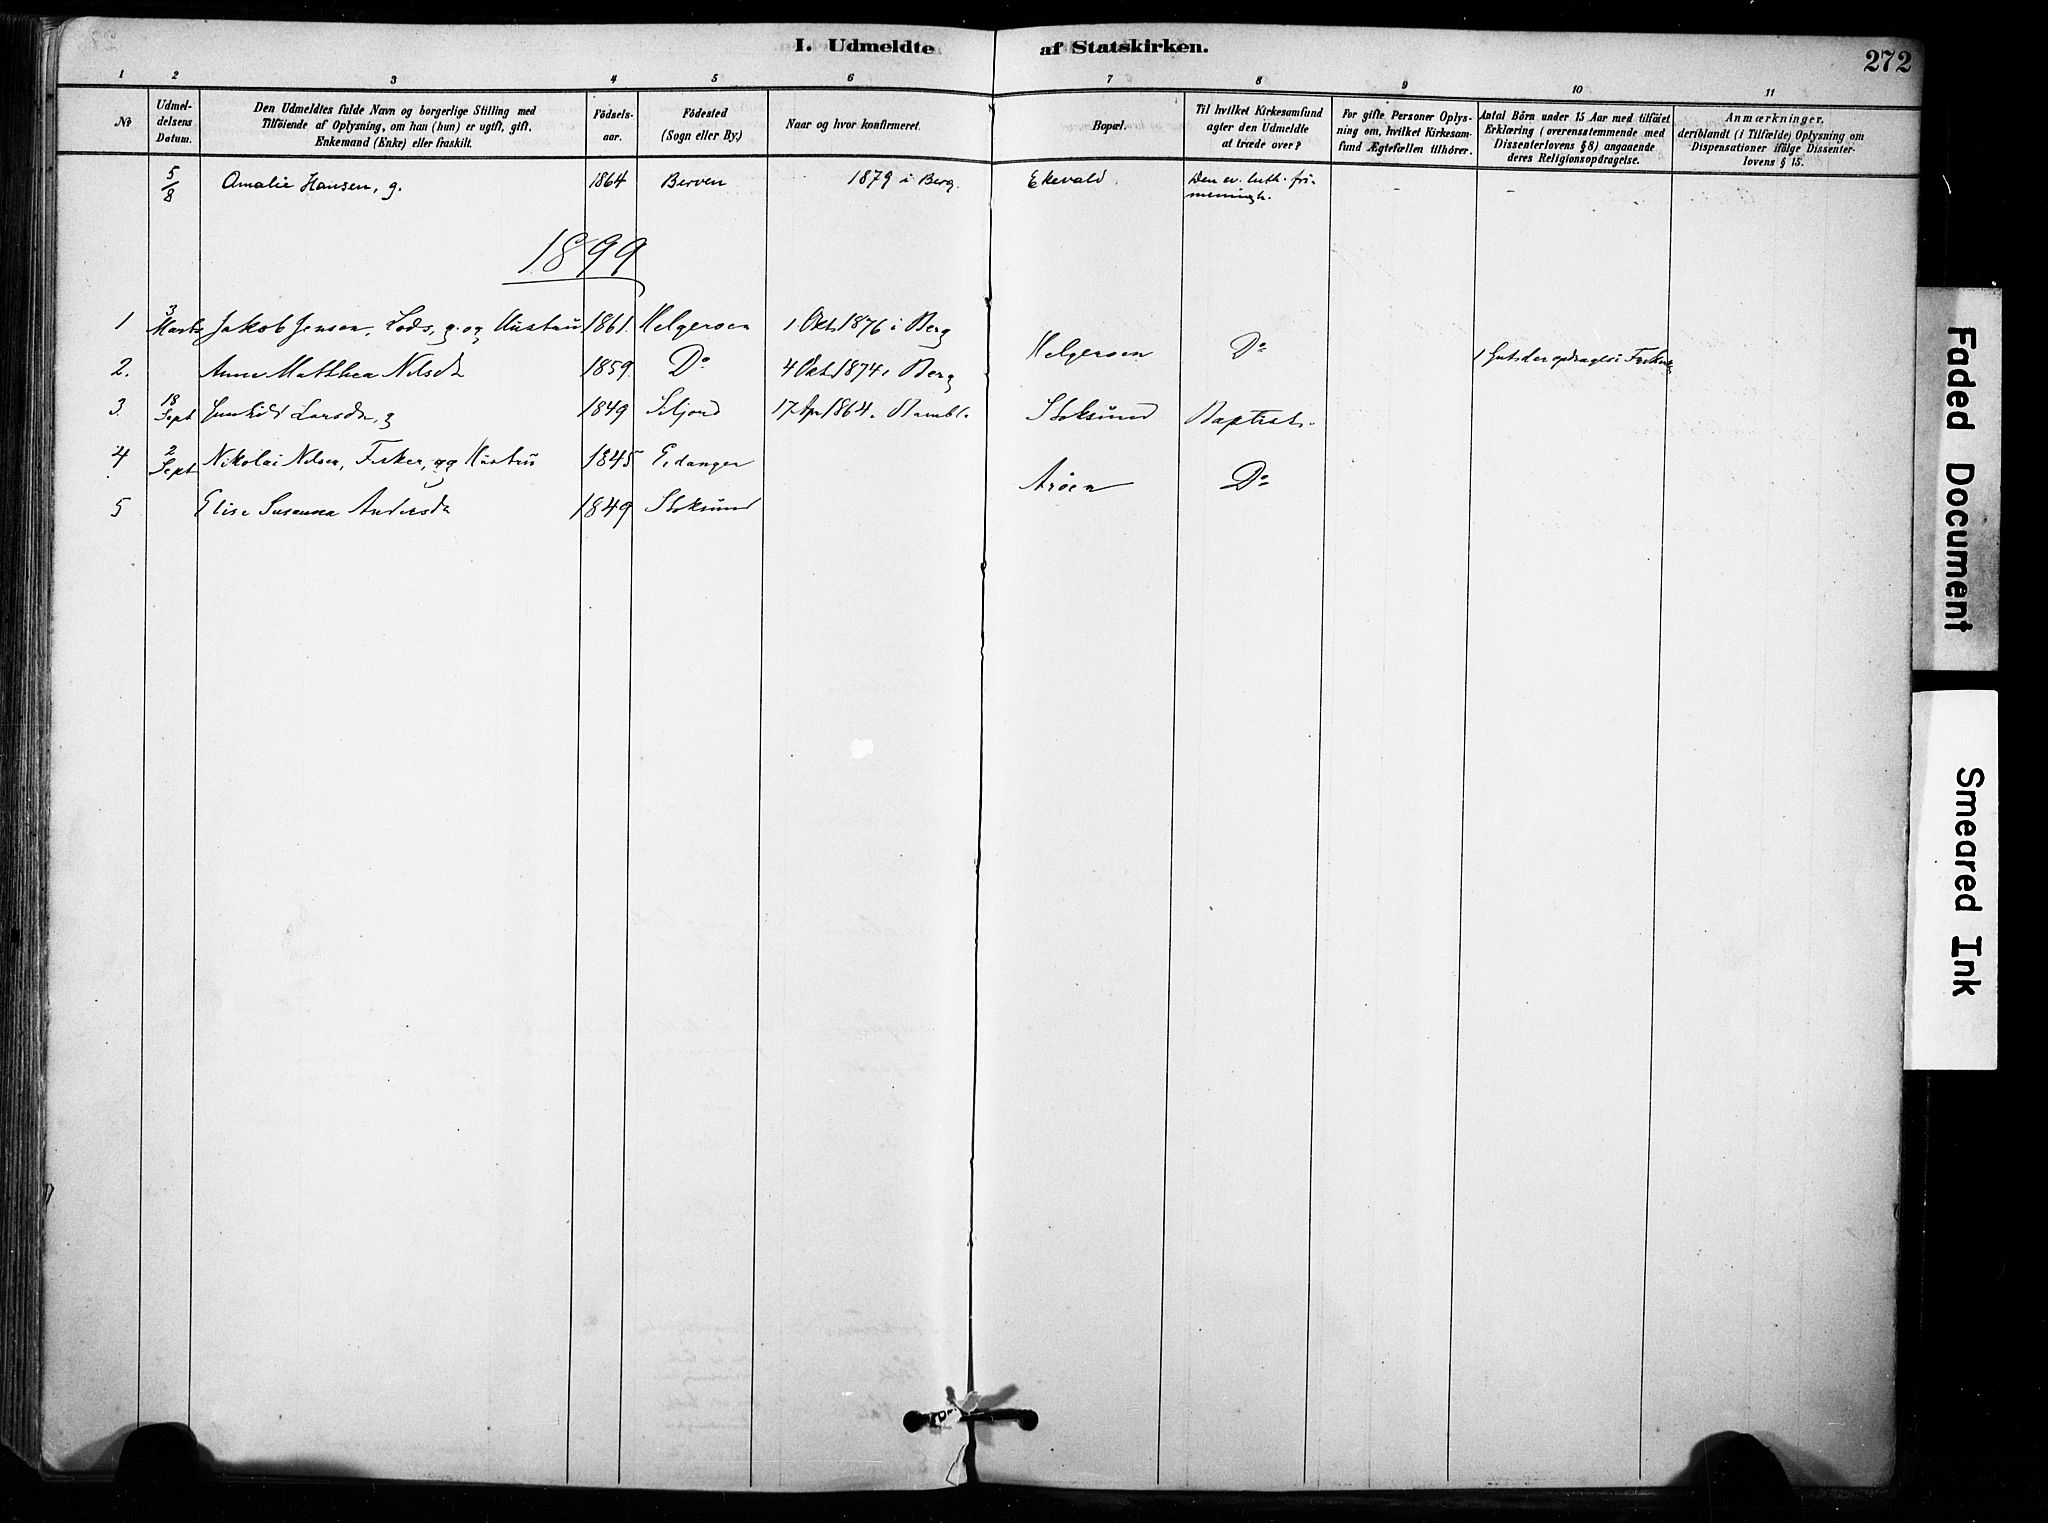 I. Udmeldte af Statskirken.
272
1 2 3 4 5 6 7 8 9 10 11
No
Udmeldelsens Datum.
Den Udmeldtes fulde Navn og borgerlige Stilling med
Tilföiende af Oplysning, om han (hun) er ugift, gift,
Enkemand (Enke) eller fraskilt.
Födselsaar.
Födested
(Sogn eller By.)
Naar og hvor konfirmeret.
Bopæl.
Til hvilket Kirkesamfund
agter den Udmeldte
at træde over?
For gifte Personer Oplys-
ning om, hvilket Kirkesam-
fund Ægtefællen tilhörer.
Antal Börn under 15 Aar med tilföiet
Erklæring (overensstemmende med
Dissenterlovens § 8) angaaende
deres Religionsopdragelse.
Anmærkninger,
deriblandt (i Tilfælde) Oplysning om
Dispensationer ifölge Dissenter-
lovens § 15.
5/8 Amalie Hansen, g. 1864 Berven 1879 i Berg. Ekevald. Den ev. luth. fri-
menigh.
1899
1 3 Marts Jakob Jensen, Lods, g. og Hustru 1861. Helgeroen 1 Okt 1876 i Berg
Helgeroen Do
2. Anne Mathea Nilsdr 1859 Do 4 Okt 1874 i Berg
3. 18 Sept Gunhild Larsdr, g 1849 Siljord 17 Apr 1864. Bamble Stoksund Baptist.
4. 2 Sept Nikolai Nilsen, Fisker, og Hustru 1845 Eidanger
Arøen Do
5 Elise Susanna Andersdr 1849 Stoksund
Faded Document
Smeared Ink